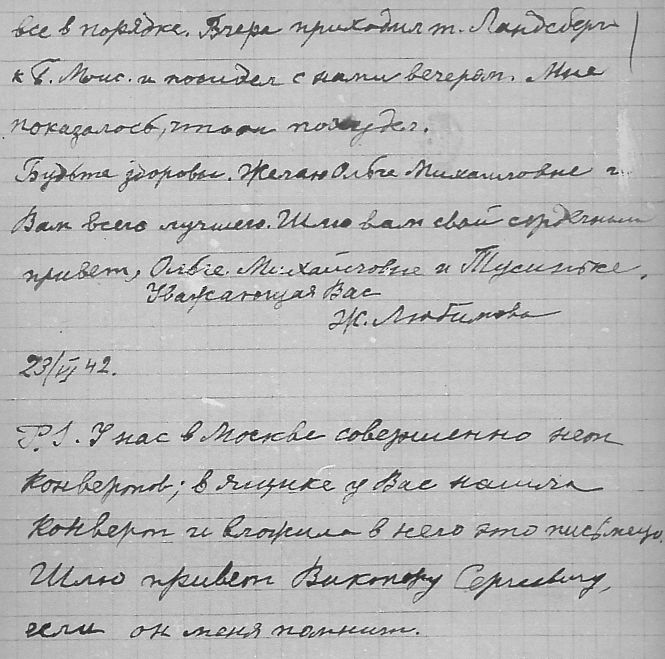 все в порядке. Вчера приходил т. Ландсберг
к Б. Моис. и посидел с нами вечером. Мне
показалось, что он похудел.
Будьте здоровы. Желаю Ольге Михайловне и
Вам всего лучшего. Шлю вам свой сердечный
привет, Ольге Михайловне и Тусиньке.
Уважающая Вас
Ж. Любимова
23/VI 42.
P.S. У нас в Москве совершенно нет
конвертов; в ящике у Вас нашла
конверт и вложила в него это письмецо.
Шлю привет Виктору Сергеевичу,
если он меня помнит.